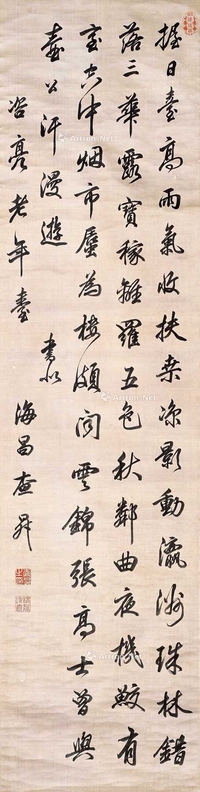 握日台高雨氣收扶桑涼影動瀛洲珠林錯
落三華露寶稼離羅五色秋鄰曲夜機鮫有
室空中烟市蜃為樓頗聞雲錦張高士曾與
盧公汗漫遊
書似
咨亮老年臺
海昌查昇